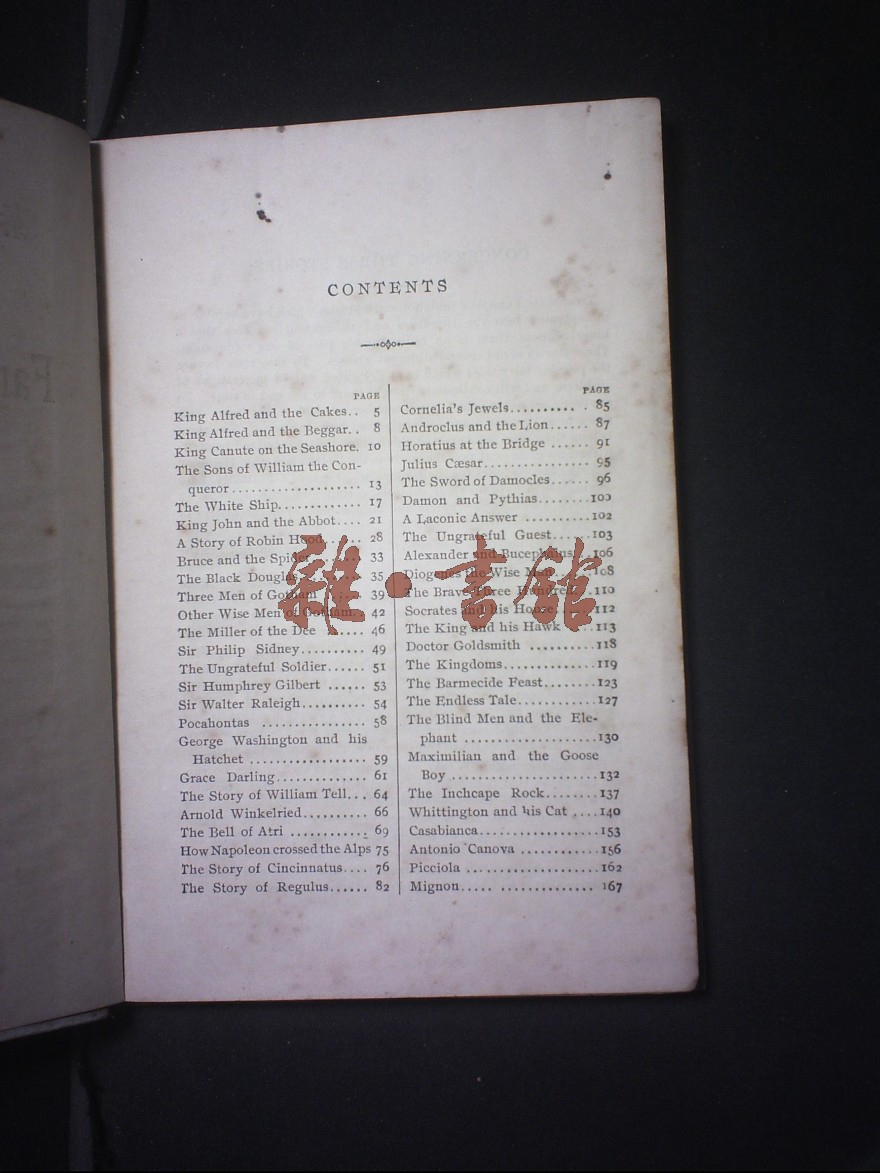 CONTENTS
PAGE
King Alfred and the Cakes.. 5
King Alfred and the Beggar.. 8
King Canute on the Seashore. 10
The Sons of William the Con-
queror................... 13
The White Ship............. 17
King John and the Abbot.... 21
A Story of Robin Hood...... 28
Bruce and the Spider....... 33
The Black Douglas......... 35
Three Men of Gotham ..... 39
Other Wise Men of Gotham.. 42
The Miller of the Dee ...... 46
Sir Philip Sidney.......... 49
The Ungrateful Soldier...... 51
Sir Humphrey Gilbert ...... 53
Sir Walter Raleigh.......... 54
Pocahontas ................ 58
George Washington and his
Hatchet .................. 59
Grace Darling.............. 61
The Story of William Tell... 64
Arnold Winkelried.......... 66
The Bell of Atri ............ 69
How Napoleon crossed the Alps 75
The Story of Cincinnatus.... 76
The Story of Regulus...... 82
PAGE
Cornelia's Jewels........... 85
Androclus and the Lion...... 87
Horatius at the Bridge ...... 91
Julius Cæsar................ 95
The Sword of Damocles...... 96
Damon and Pythias........100
A Laconic Answer ..........102
The Ungrateful Guest......103
Alexander and Bucephalus...106
Diogenes the Wise Man.....108
The Brave Three Hundred..110
Socrates and his House.....112
The King and his Hawk ....113
Doctor Goldsmith ..........118
The Kingdoms.............119
The Barmecide Feast........123
The Endless Tale............127
The Blind Men and the Ele-
phant ....................130
Maximilian and the Goose
Boy ......................132
The Inchcape Rock........137
Whittington and his Cat ....140
Casabianca..................153
Antonio Canova ............156
Picciola ....................162
Mignon..... ..............167
雜·書館